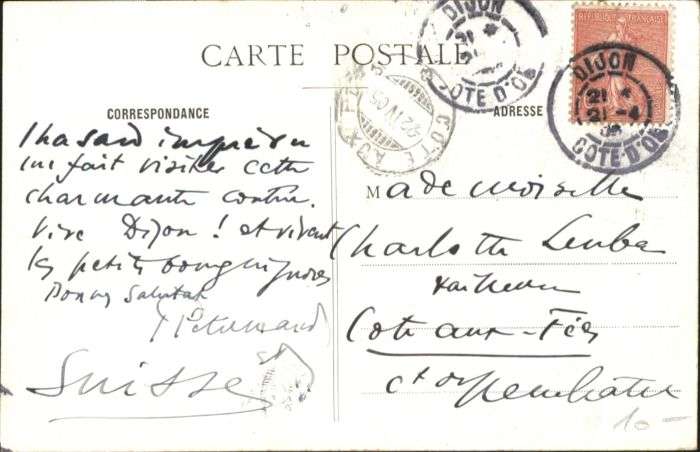 CARTE POSTALE
CORRESPONDANCE
ADRESSE
REPUBLIQUE FRANÇAISE
DIJON
COTE D'OR
DIJON
21 *
21 -4
COTE D'OR
COTE AUX FEES
22 IV 05
l hasard imprévu
me fait visiter cette
charmante contrée.
Vive Dijon ! et vivent
les petits bourguignons
Bonnes Salutat
Suisse
Mademoiselle
Charlotte Leuba
Côte aux-Fées
Ct de Neuchâtel
10 -